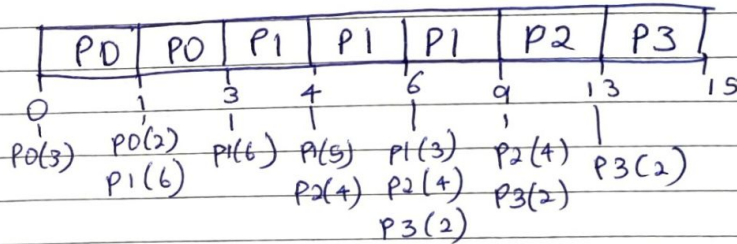 P0 P0 P1 P1 P1 P2 P3
0 1 3 4 6 9 13 15
P0(3) P0(2) P1(6) P1(5) P1(3) P2(4) P3(2)
P1(6) P2(4) P2(4) P3(2)
P3(2)